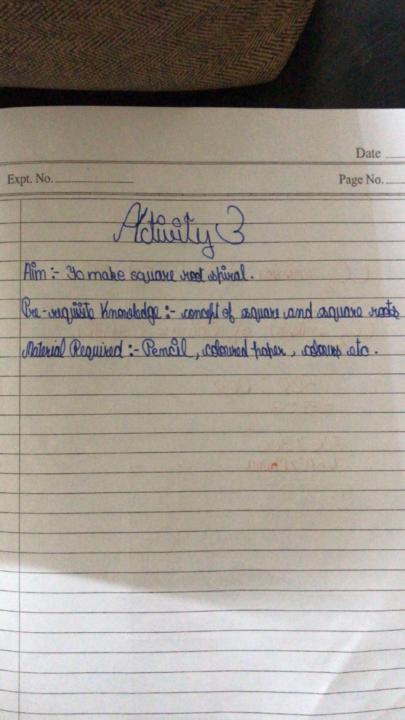 Date
Expt. No.
Page No.
Activity 3
Aim :- To make square root spiral.
Pre-requisite Knowledge :- concept of square and square roots
Material Required :- Pencil, coloured paper, colours etc.